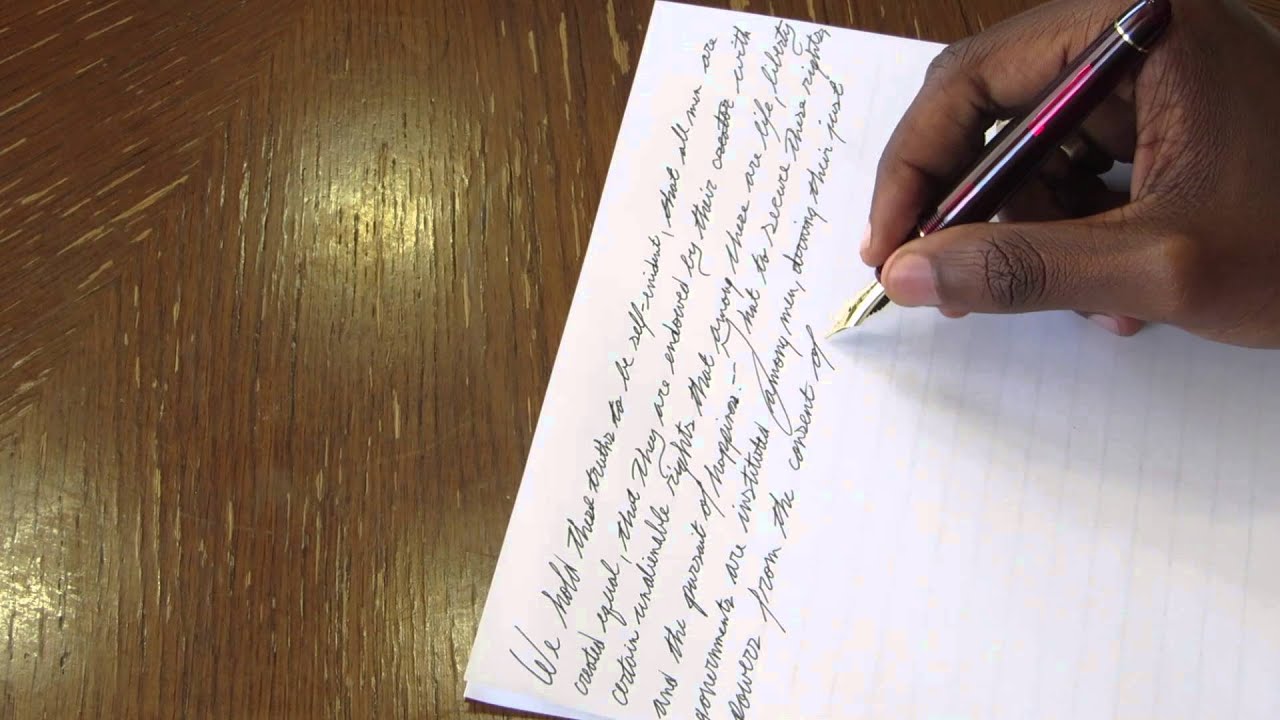 We hold these truths to be self-evident, that all men are
created equal, that they are endowed by their creator with
certain unalienable rights that among these are life, liberty
and the pursuit of happiness.— that to secure these rights,
governments are instituted among men, deriving their just
powers from the consent of